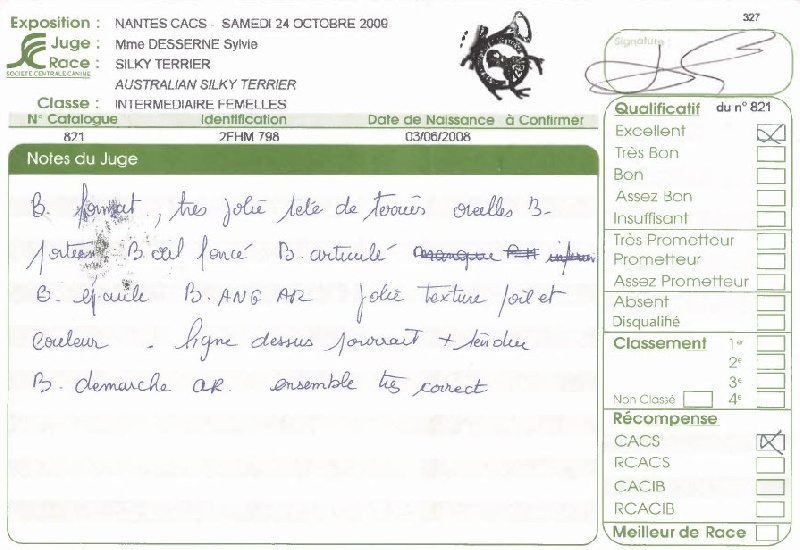 327
Exposition : NANTES CACS - SAMEDI 24 OCTOBRE 2009
Juge : Mme DESSERNE Sylvie
Race : SILKY TERRIER
SOCIETE CENTRALE CANINE
AUSTRALIAN SILKY TERRIER
Classe : INTERMEDIAIRE FEMELLES
N° Catalogue Identification Date de Naissance à Confirmer
821 2FHM 798 03/06/2008
Notes du Juge
B. format, tres jolie tete de terrier oreilles B.
portées B oeil foncé B. articulé manque PM
B. épaule B. ANG AR jolie texture poil et
couleur . ligne dessus pourrait + tendue
B. demarche AR. ensemble tres correct
Signature :
Qualificatif du n° 821
Excellent
Très Bon
Bon
Assez Bon
Insuffisant
Très Prometteur
Prometteur
Assez Prometteur
Absent
Disqualifié
Classement 1er
2e
3e
Non Classé 4e
Récompense
CACS
RCACS
CACIB
RCACIB
Meilleur de Race